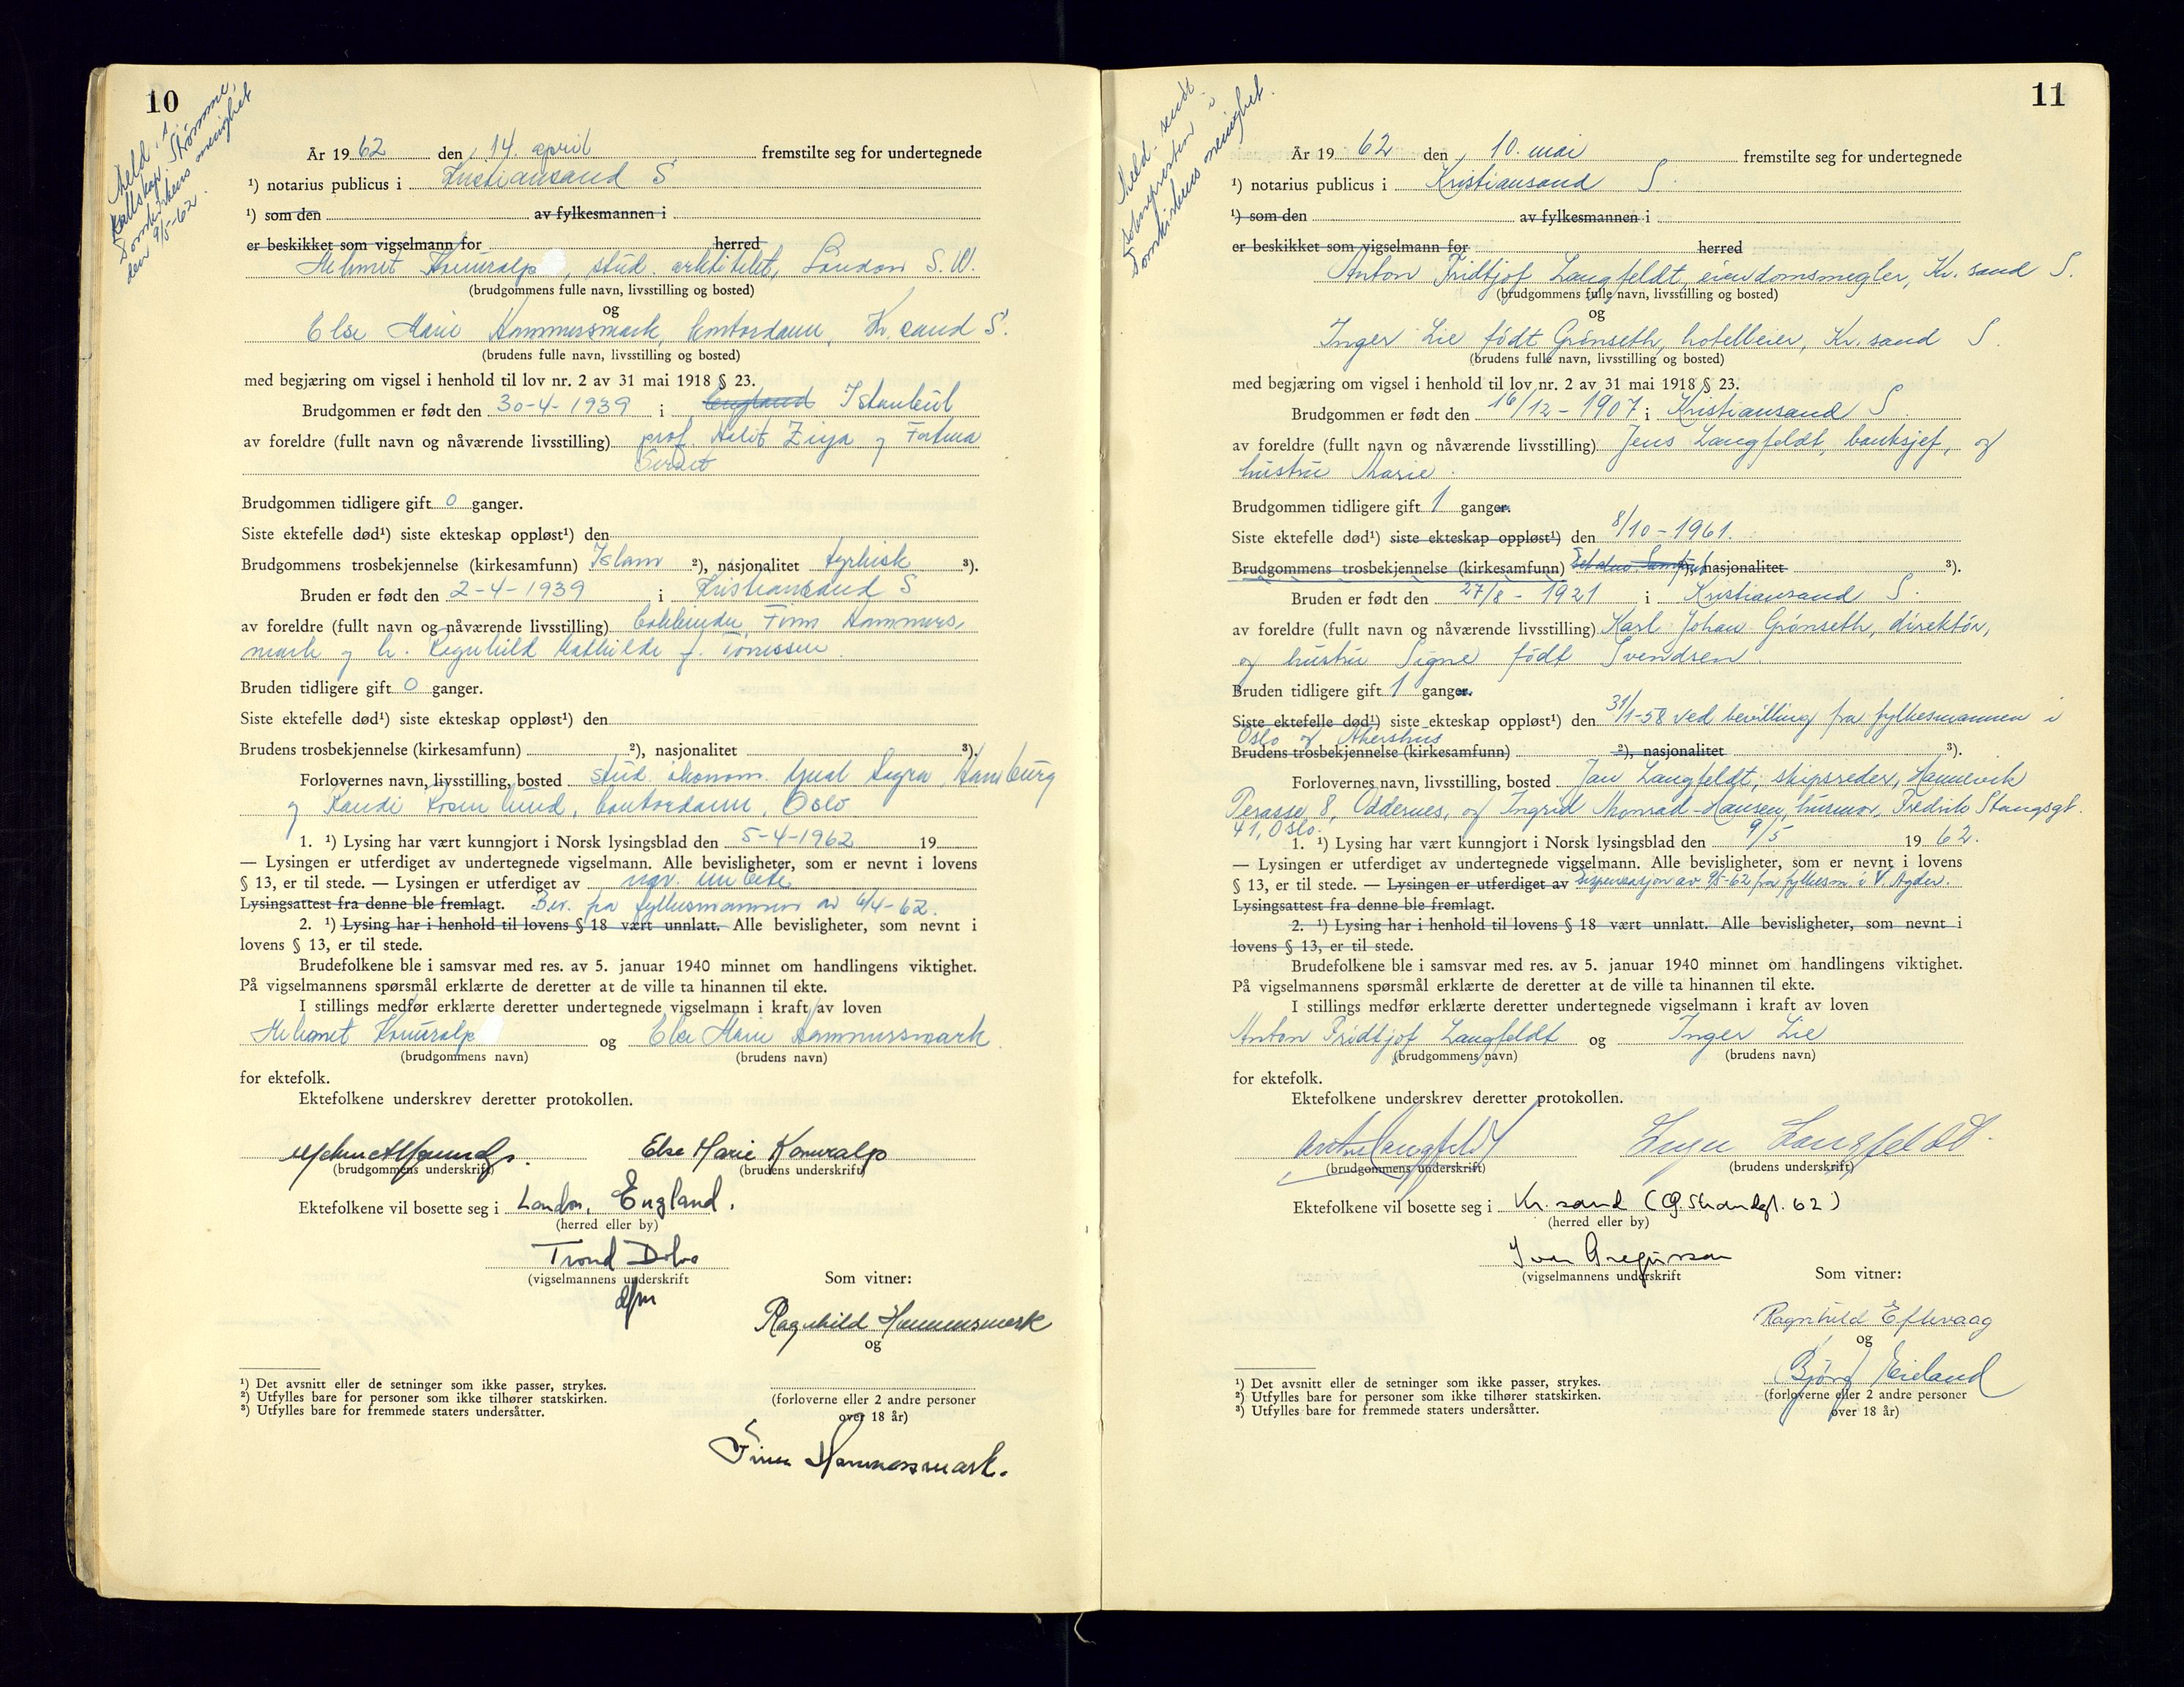 10
Meld. s.
Kallskap. Strømme,
Domkirkens menighet
den 9/5-62.
År 1962 den 14 april fremstilte seg for undertegnede
¹) notarius publicus i Kristiansand S
¹) som den av fylkesmannen i
er beskikket som vigselmann for herred
Mehmet Konuralp, stud. arkitekt, London S.W.
(brudgommens fulle navn, livsstilling og bosted)
og
Else Marie Hammersmark, kontordame, Kr. sand S.
(brudens fulle navn, livsstilling og bosted)
med begjæring om vigsel i henhold til lov nr. 2 av 31 mai 1918 § 23.
Brudgommen er født den 30-4-1939 i England Istanbul
av foreldre (fullt navn og nåværende livsstilling) prof. Halit Ziya og Fatma
Brudgommen tidligere gift 0 ganger.
Siste ektefelle død¹) siste ekteskap oppløst¹) den
Brudgommens trosbekjennelse (kirkesamfunn) Islam ²), nasjonalitet tyrkisk ³).
Bruden er født den 2-4-1939 i Kristiansand S
av foreldre (fullt navn og nåværende livsstilling) Finn Hammers-
mark og h. Ragnhild Mathilde f. Tønnessen.
Bruden tidligere gift 0 ganger.
Siste ektefelle død¹) siste ekteskap oppløst¹) den
Brudens trosbekjennelse (kirkesamfunn) ²), nasjonalitet ³).
Forlovernes navn, livsstilling, bosted stud. økonom. Hamburg
og Randi Rosenlund, kontordame, Oslo
1. ¹) Lysing har vært kunngjort i Norsk lysingsblad den 5-4-1962 19
— Lysingen er utferdiget av undertegnede vigselmann. Alle bevisligheter, som er nevnt i lovens
§ 13, er til stede. — Lysingen er utferdiget av
Lysingsattest fra denne ble fremlagt. Bev. fra fylkesmannen av 6/4-62.
2. ¹) Lysing har i henhold til lovens § 18 vært unnlatt. Alle bevisligheter, som nevnt i
lovens § 13, er til stede.
Brudefolkene ble i samsvar med res. av 5. januar 1940 minnet om handlingens viktighet.
På vigselmannens spørsmål erklærte de deretter at de ville ta hinannen til ekte.
I stillings medfør erklærte deretter undertegnede vigselmann i kraft av loven
Mehmet Konuralp og Else Marie Hammersmark
(brudgommens navn) (brudens navn)
for ektefolk.
Ektefolkene underskrev deretter protokollen.
Else Marie Konuralp
(brudgommens underskrift) (brudens underskrift)
Ektefolkene vil bosette seg i London, England.
(herred eller by)
Trond Dolva
(vigselmannens underskrift Som vitner:
dfm
Ragnhild Hammersmark
og
¹) Det avsnitt eller de setninger som ikke passer, strykes.
²) Utfylles bare for personer som ikke tilhører statskirken.
³) Utfylles bare for fremmede staters undersåtter.
(forloverne eller 2 andre personer
over 18 år)
Finn Hammersmark.
11
Meld. sendt
soknepresten i
Domkirkens menighet.
År 1962 den 10. mai fremstilte seg for undertegnede
¹) notarius publicus i Kristiansand S.
¹) som den av fylkesmannen i
er beskikket som vigselmann for herred
Anton Fridtjof Langfeldt, eiendomsmegler, Kr. sand S.
(brudgommens fulle navn, livsstilling og bosted)
og
Inger Lie født Grønseth, hotelleier, Kr. sand S.
(brudens fulle navn, livsstilling og bosted)
med begjæring om vigsel i henhold til lov nr. 2 av 31 mai 1918 § 23.
Brudgommen er født den 16/12-1907 i Kristiansand S.
av foreldre (fullt navn og nåværende livsstilling) Jens Langfeldt, banksjef, og
hustru Marie.
Brudgommen tidligere gift 1 ganger.
Siste ektefelle død¹) siste ekteskap oppløst¹) den 8/10-1961.
Brudgommens trosbekjennelse (kirkesamfunn) ²), nasjonalitet ³).
Bruden er født den 27/8-1921 i Kristiansand S.
av foreldre (fullt navn og nåværende livsstilling) Karl Johan Grønseth, direktør,
og hustru Signe født Svendsen.
Bruden tidligere gift 1 ganger.
Siste ektefelle død¹) siste ekteskap oppløst¹) den 31/1-58 ved bevilling fra fylkesmannen i
Oslo og Akershus
Brudens trosbekjennelse (kirkesamfunn) ²), nasjonalitet ³).
Forlovernes navn, livsstilling, bosted Jan Langfeldt, skipsreder, Hannevik
Terasse 8, Oddernes, og Ingrid Monrad-Hansen, husmor, Fredrik Stangsgt.
41, Oslo.
1. ¹) Lysing har vært kunngjort i Norsk lysingsblad den 9/5 1962.
— Lysingen er utferdiget av undertegnede vigselmann. Alle bevisligheter, som er nevnt i lovens
§ 13, er til stede. — Lysingen er utferdiget av Dispensasjon av 9/5-62 fra fylkesm. i V. Agder.
Lysingsattest fra denne ble fremlagt.
2. ¹) Lysing har i henhold til lovens § 18 vært unnlatt. Alle bevisligheter, som nevnt i
lovens § 13, er til stede.
Brudefolkene ble i samsvar med res. av 5. januar 1940 minnet om handlingens viktighet.
På vigselmannens spørsmål erklærte de deretter at de ville ta hinannen til ekte.
I stillings medfør erklærte deretter undertegnede vigselmann i kraft av loven
Anton Fridtjof Langfeldt og Inger Lie
(brudgommens navn) (brudens navn)
for ektefolk.
Ektefolkene underskrev deretter protokollen.
Anton Langfeldt Inger Langfeldt.
(brudgommens underskrift) (brudens underskrift)
Ektefolkene vil bosette seg i Kr. sand (Ø. Strandgt. 62)
(herred eller by)
Ivar Gregersen
(vigselmannens underskrift Som vitner:
Ragnhild Eftevaag
og
Bjørg Eieland
¹) Det avsnitt eller de setninger som ikke passer, strykes.
²) Utfylles bare for personer som ikke tilhører statskirken.
³) Utfylles bare for fremmede staters undersåtter.
(forloverne eller 2 andre personer
over 18 år)